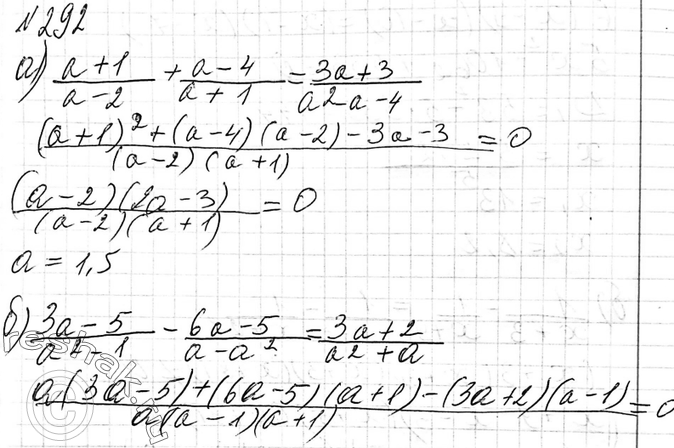 №292
а) (a+1)/(a-2) + (a-4)/(a+1) = (3a+3)/(a²-a-4)
((a+1)²+(a-4)(a-2)-3a-3)/((a-2)(a+1)) = 0
((a-2)(2a-3))/((a-2)(a+1)) = 0
a = 1,5
б) (3a-5)/(a²-1) - (6a-5)/(a-a²) = (3a+2)/(a²+a)
(a(3a-5)+(6a-5)(a+1)-(3a+2)(a-1))/(a(a-1)(a+1)) = 0